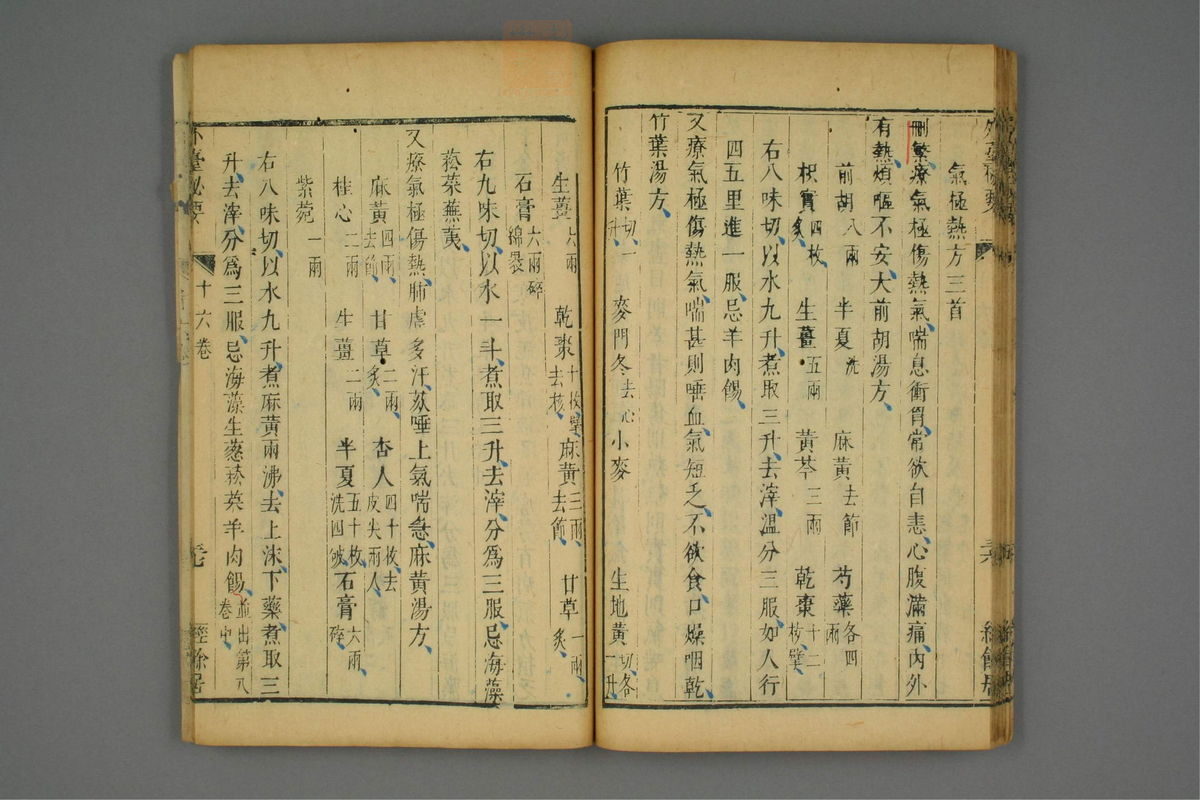 氣極熱方三首
刪繁療氣極傷熱氣喘息衝胷常欲自恚心腹滿痛內外
有熱煩嘔不安大前胡湯方
前胡八兩 半夏洗 麻黃去節 芍藥各四兩
枳實四枚炙 生薑五兩 黃芩三兩 乾棗十二枚擘
右八味切以水九升煮取三升去滓溫分三服如人行
四五里進一服忌羊肉餳
又療氣極傷熱氣喘甚則唾血氣短乏不欲食口燥咽乾
竹葉湯方
竹葉切一升 麥門冬去心 小麥 生地黃切各一升
生薑六兩 乾棗十枚擘去核 麻黃三兩去節 甘草一兩炙
石膏六兩碎綿裹
右九味切以水一斗煮取三升去滓分為三服忌海藻
菘菜蕪荑
又療氣極傷熱肺虛多汗欬唾上氣喘急麻黃湯方
麻黃四兩去節 甘草二兩炙 杏人四十枚去皮尖兩人
桂心二兩 生薑二兩 半夏五十枚洗四破 石膏六兩碎
紫菀一兩
右八味切以水九升煮麻黃兩沸去上沫下藥煮取三
升去滓分爲三服忌海藻生葱菘菜羊肉餳並出第八卷中
外臺秘要 十六卷 經餘居